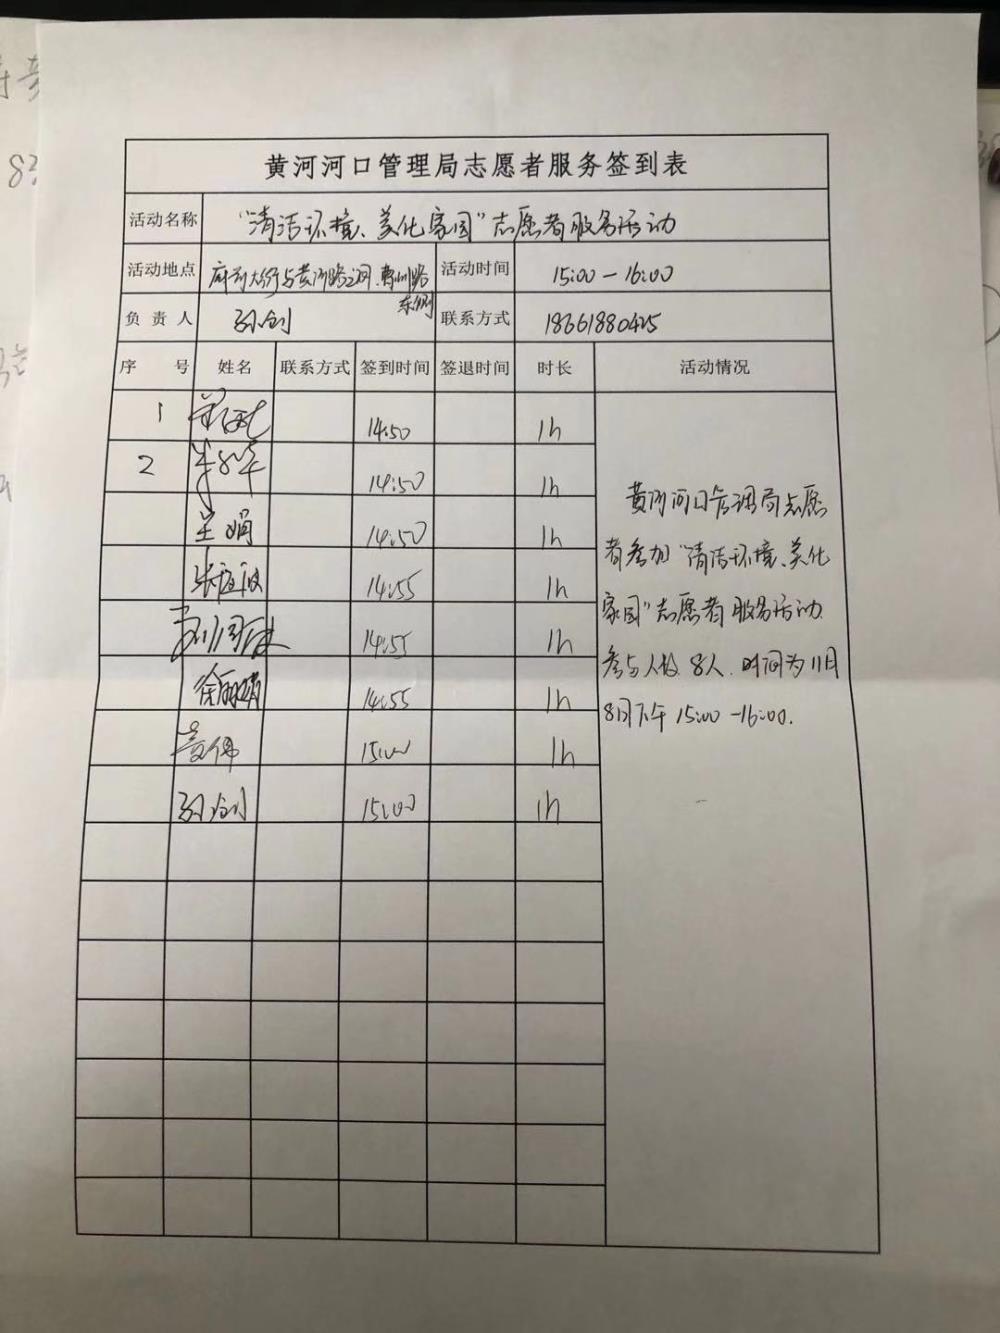 黄河河口管理局志愿者服务签到表
活动名称 "清洁环境、美化家园"志愿者服务活动
活动地点 府前大街与黄河路之间、 路东侧 活动时间 15:00-16:00
负责人 孙创 联系方式 18661880425
序号 姓名 联系方式 签到时间 签退时间 时长 活动情况
1 14:50 1h
2 14:50 1h
娟 14:50 1h
张 14:55 1h
14:55 1h
徐 14:55 1h
伟 15:00 1h
孙创 15:00 1h
黄河河口管理局志愿
者参加"清洁环境、美化
家园"志愿者服务活动.
参与人数8人.时间为11月
8日下午15:00-16:00.